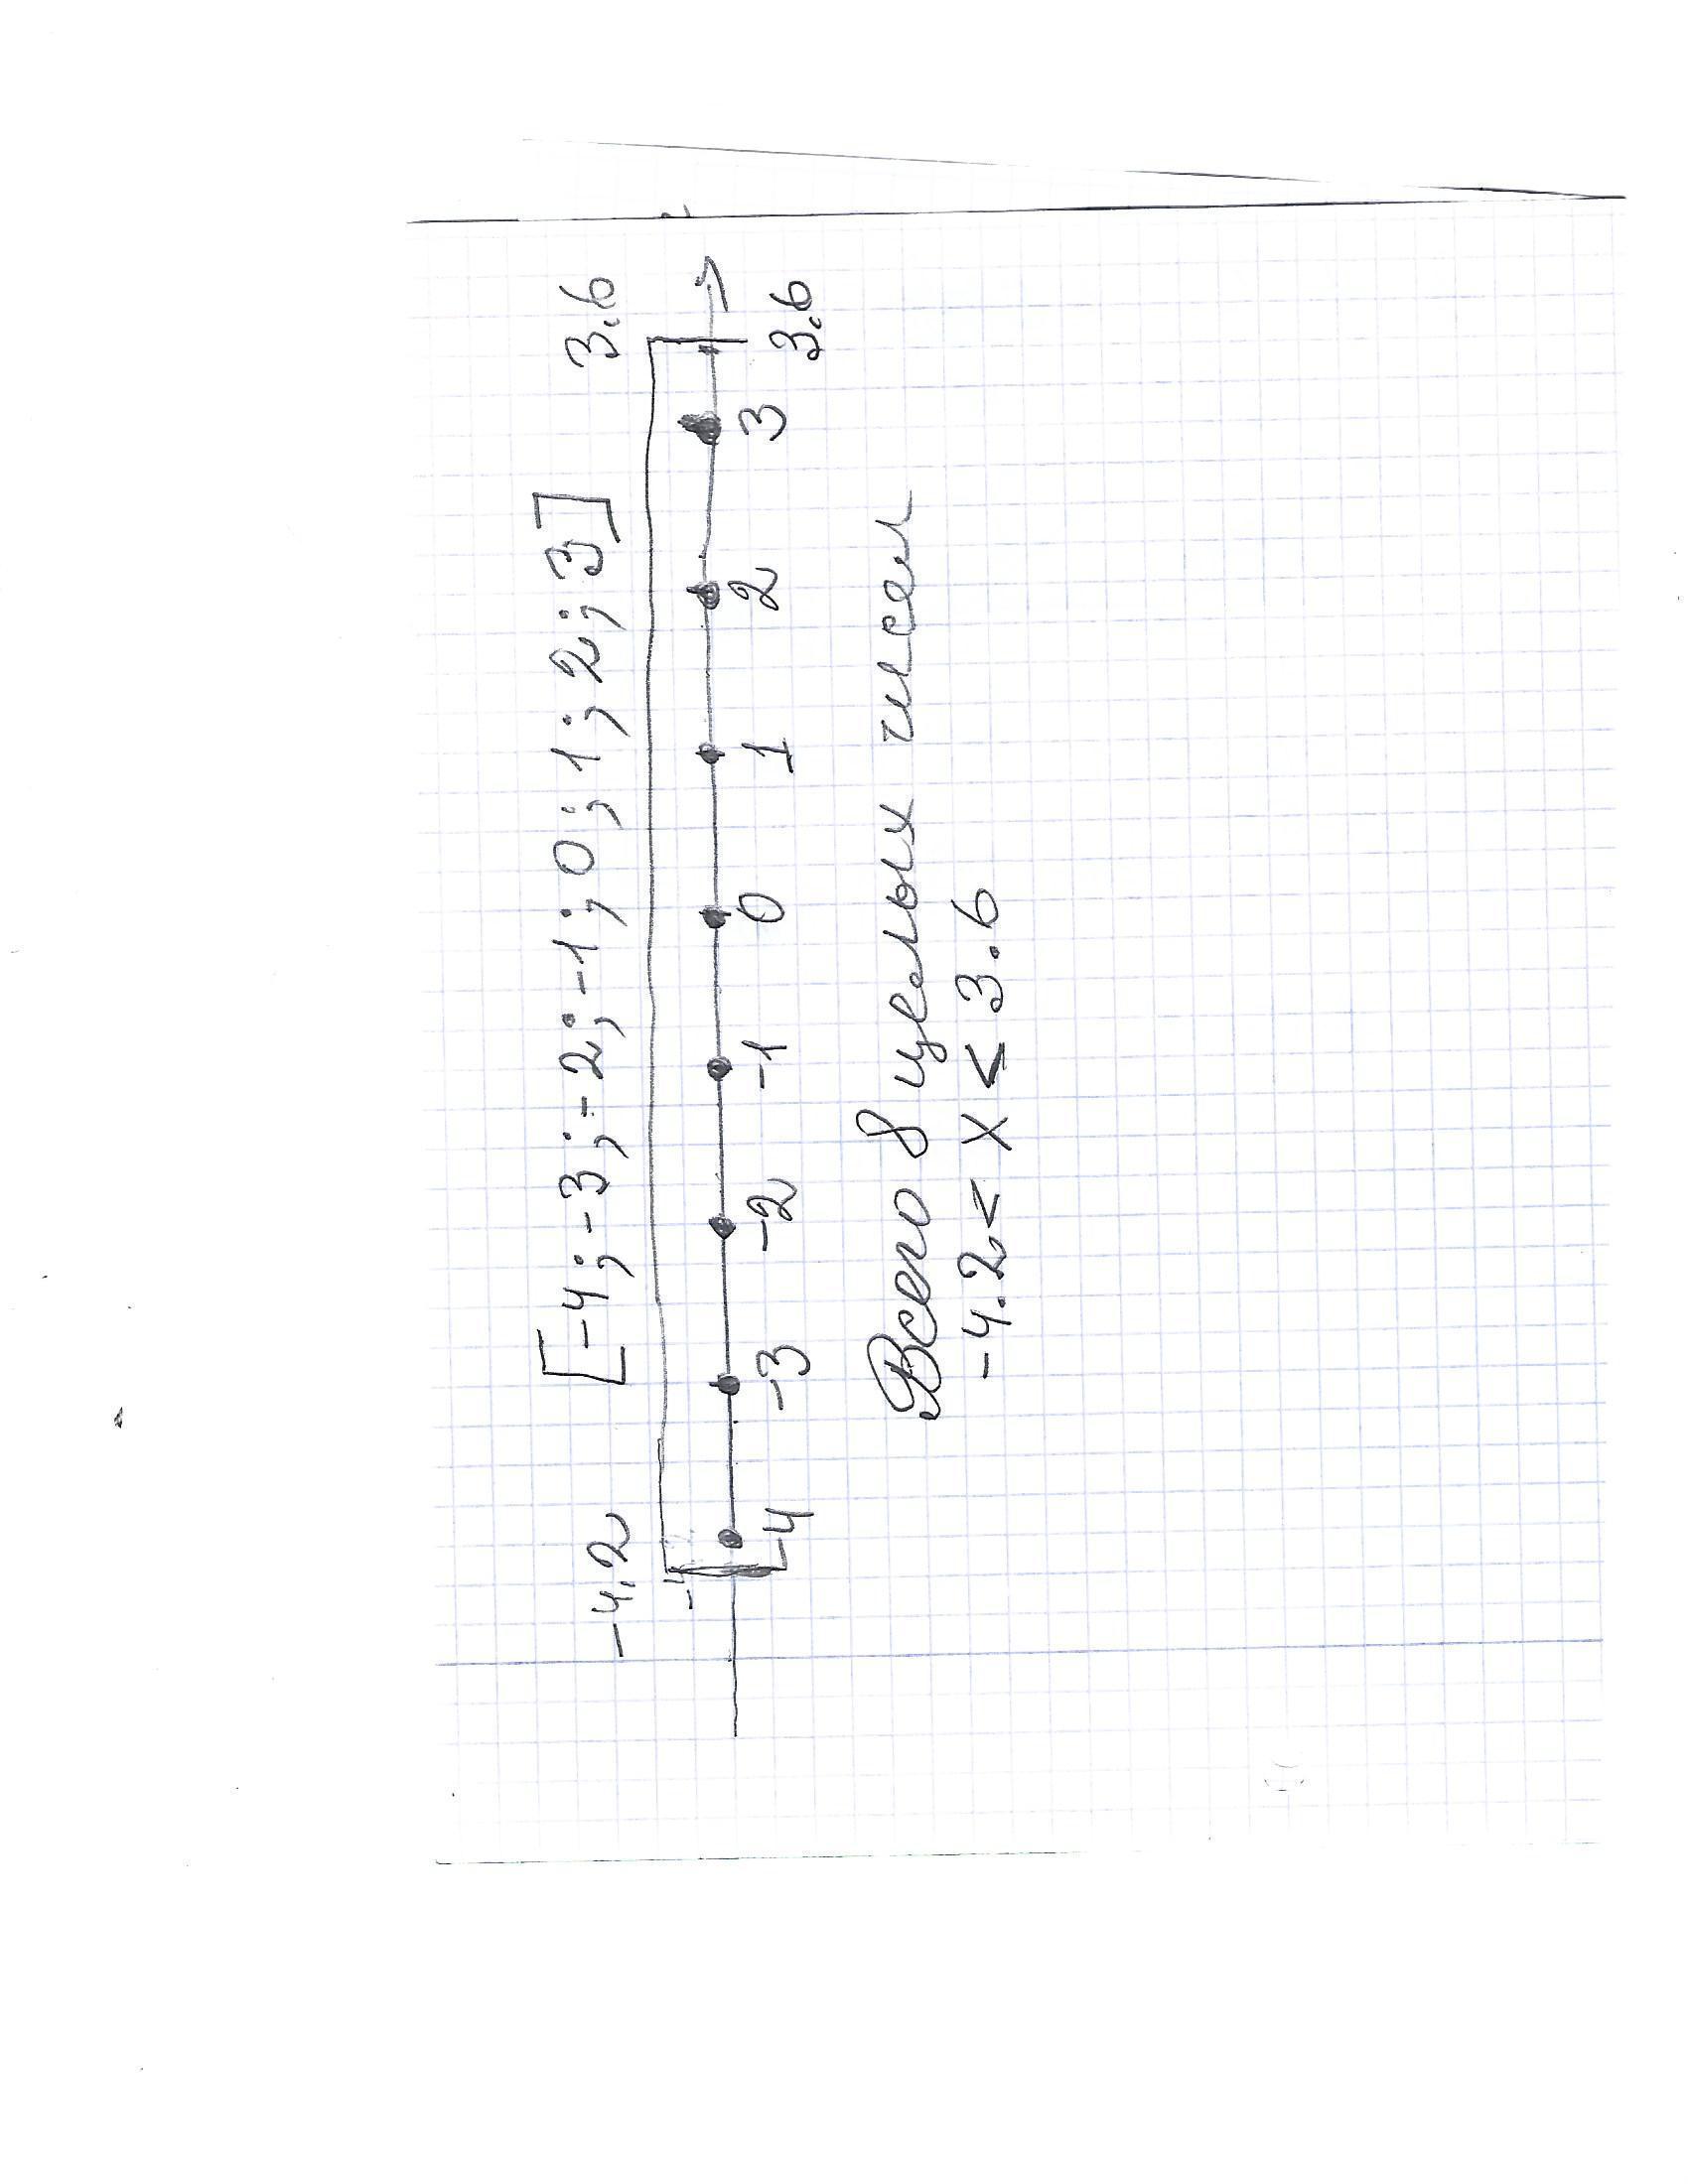 -4,2 [-4; -3; -2; -1; 0; 1; 2; 3] 3,6
-4 -3 -2 -1 0 1 2 3 3,6
Всего 8 целых чисел
-4.2 < x < 3.6